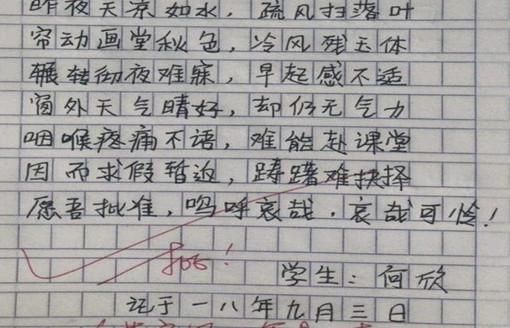 昨夜天凉如水，疏风扫落叶
帘动画堂秋色，冷风残玉体
辗转彻夜难寐，早起感不适
窗外天气晴好，却仍无气力
咽喉疼痛不语，难能赴课堂
因而求假暂返，踌躇难抉择
愿吾批准，呜呼哀哉．哀哉可怜！
学生：何欣
记于一八年九月三日